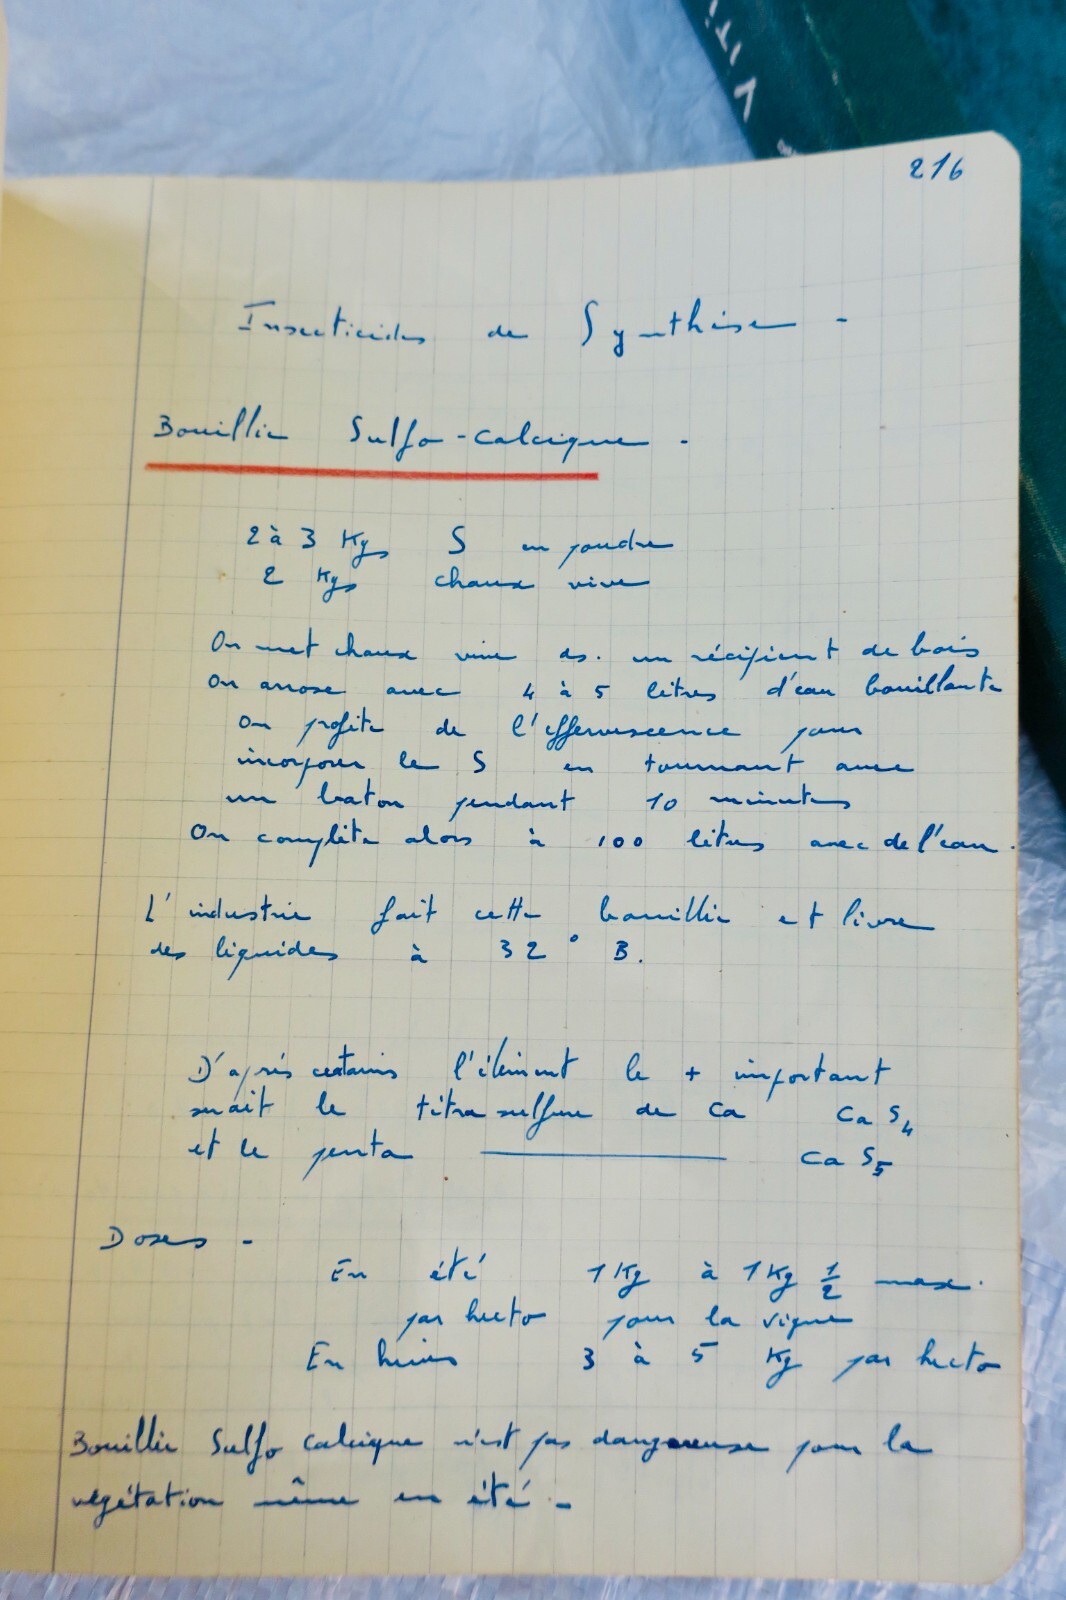 VITI
216
Insecticides de Synthèse -
Bouillie Sulfo-calcique -
2 à 3 Kgs S en poudre
2 Kgs chaux vive
On met chaux vive ds. un récipient de bois
On arrose avec 4 à 5 litres d'eau bouillante
On profite de l'effervescence pour
incorporer le S en tournant avec
un baton pendant 10 minutes
On complète alors à 100 litres avec de l'eau.
L'industrie fait cette bouillie et livre
des liquides à 32° B.
D'après certains l'élément le + important
serait le tétrasulfure de Ca CaS₄
et le penta ———— CaS₅
Doses -
En été 1 Kg à 1 Kg 1/2 max.
par hecto pour la vigne
En hiver 3 à 5 Kg par hecto
Bouillie Sulfo calcique n'est pas dangereuse pour la
végétation même en été -